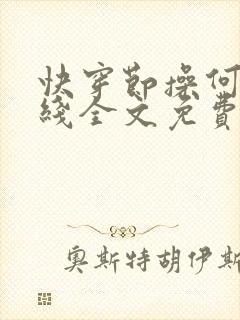 快穿节操何
綫全文免費
奥斯特胡伊斯